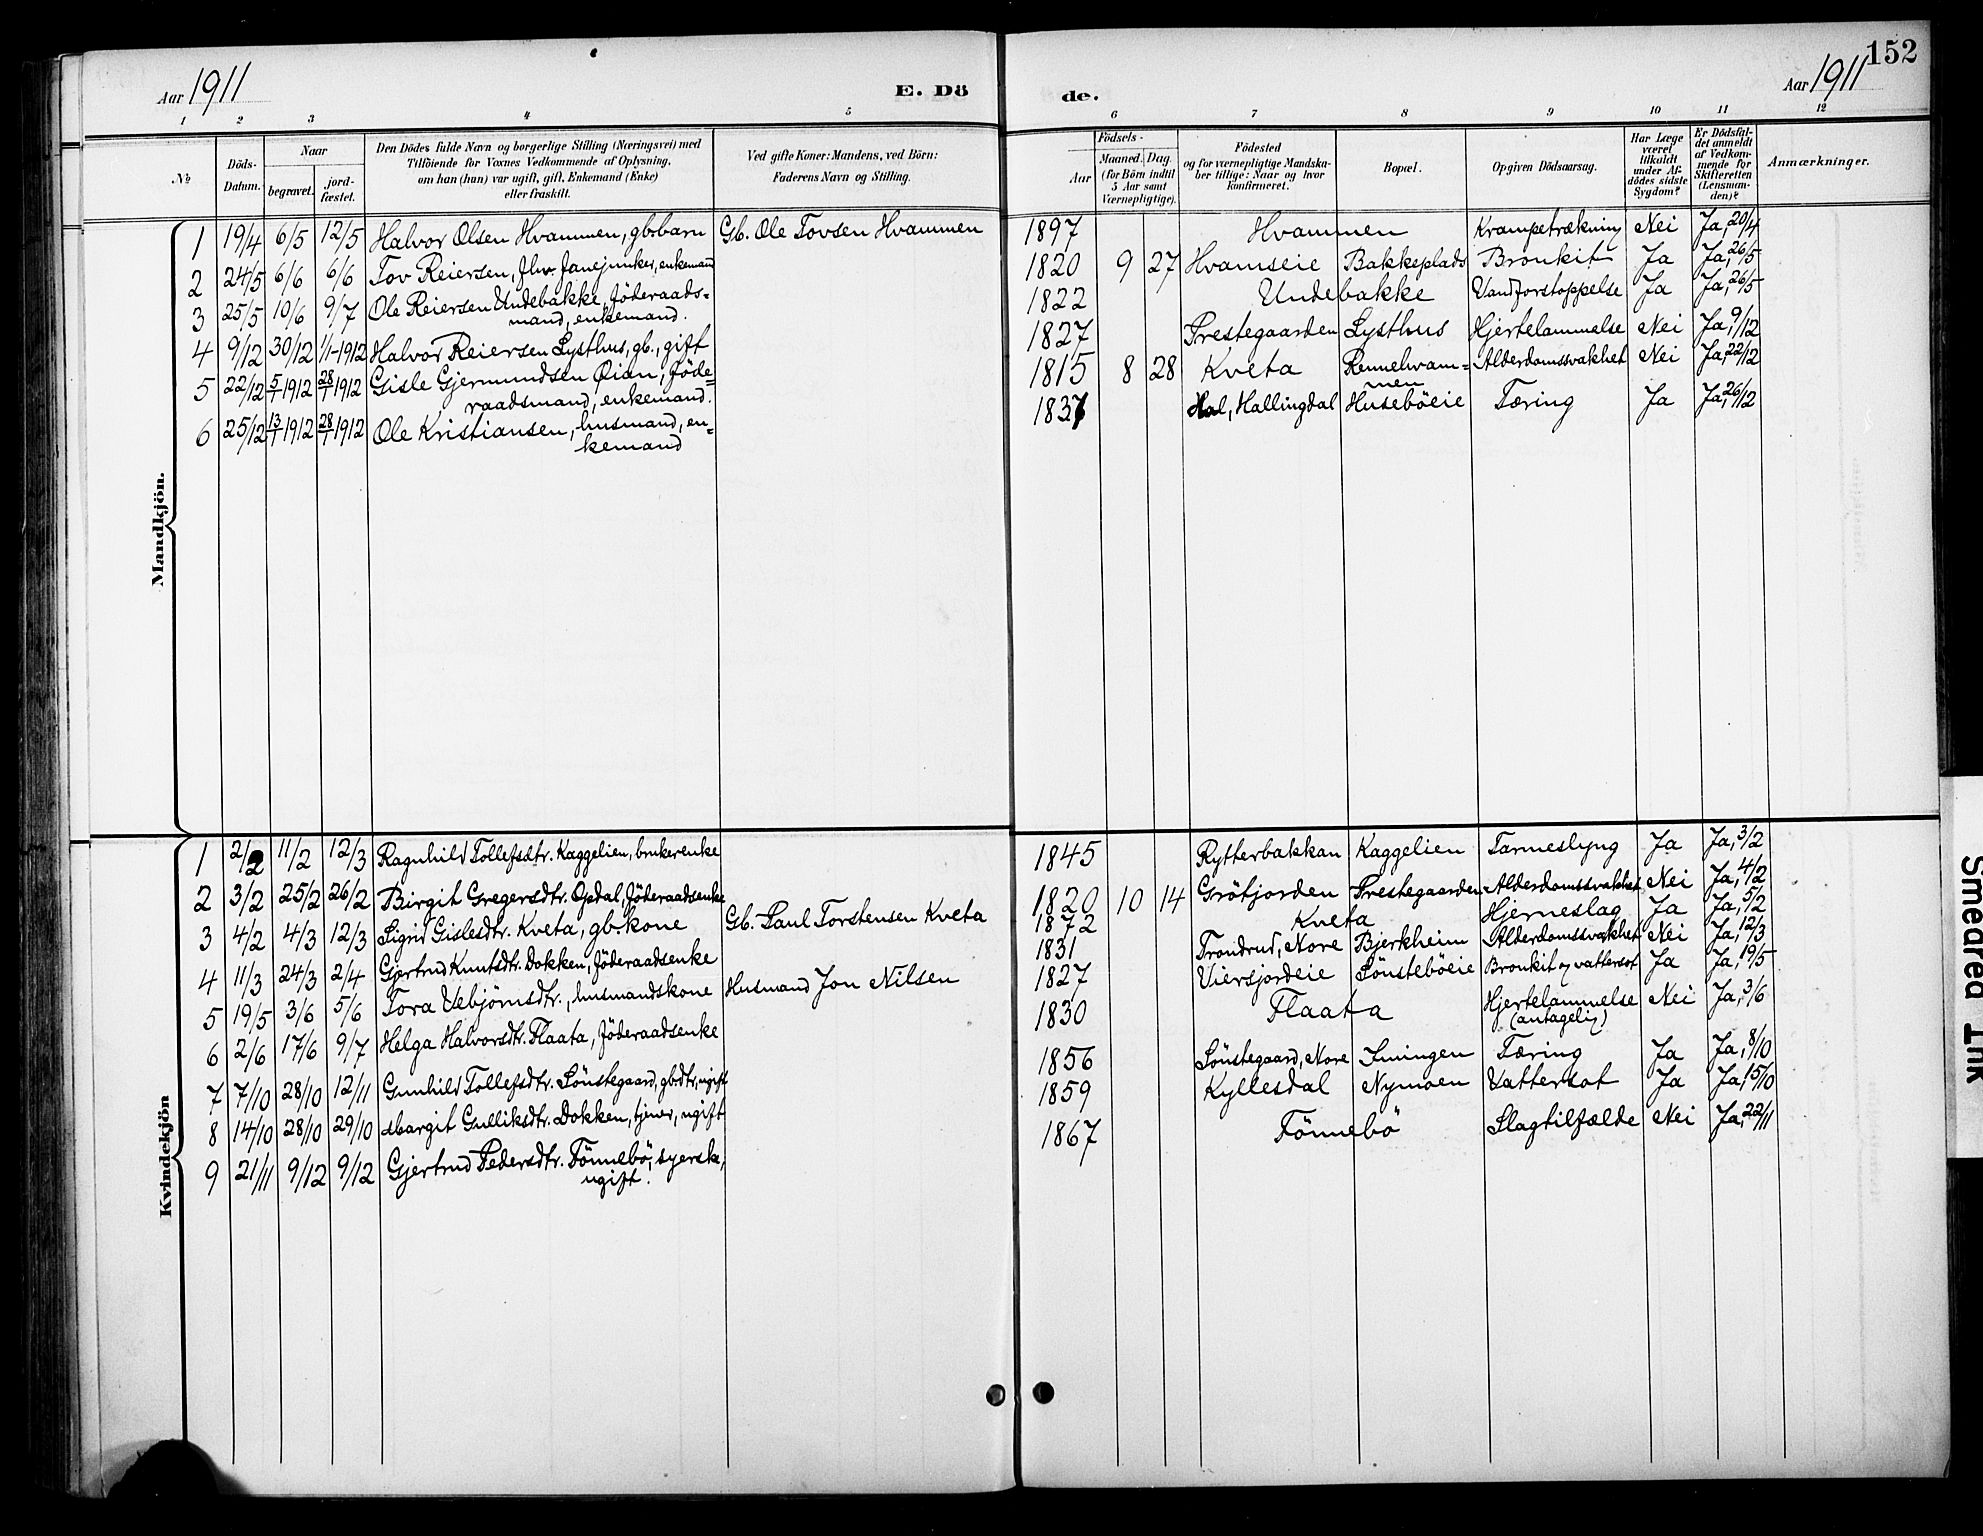 152
Aar 1911 E. Dö de. Aar 1911
1 2 3 4 5 6 7 8 9 10 11 12
№ Döds-Datum. Naar begravet. jord-fæstet. Den Dödes fulde Navn og borgerlige Stilling (Næringsvei) med Tilföiende for Voxnes Vedkommende af Oplysning, om han (hun) var ugift, gift, Enkemand (Enke) eller fraskilt. Ved gifte Koner: Mandens, ved Börn: Faderens Navn og Stilling. Födsels- Aar Maaned. Dag. (for Börn indtil 5 Aar samt Værnepligtige). Födested og for værnepligtige Mandskaber tillige: Naar og hvor konfirmeret. Bopæl. Opgiven Dödsaarsag. Har Læge været tilkaldt under Afdödes sidste Sygdom? Er Dödsfaldet anmeldt af Vedkommende for Skifteretten (Lensmanden)? Anmærkninger.
Mandkjön.
1 19/4 6/5 12/5 Halvor Olsen Hvammen, gbrbarn Gb. Ole Tovsen Hvammen 1897 Hvammen Krampetrækning Nei Ja, 20/4
2 24/5 6/6 6/6 Tov Reiersen, fhv. Janejunker, enkemand 1820 9 27 Hvamseie Bakkeplads Bronkit Ja Ja, 26/5
3 25/5 10/6 9/7 Ole Reiersen Undebakke, föderaads-
mand, enkemand. 1822 Undebakke Vandforstoppelse Ja Ja, 26/5
4 9/12 30/12 1/1-1912 Halvor Reiersen Lysthus, gb., gift 1827 Prestegaarden Lysthus Hjertelammelse Nei Ja, 9/12
5 22/12 5/1 1912 28/1 1912 Gisle Gjermundsen Öian, föde=
raadsmand, enkemand. 1815 8 28 Kveta Rennehvam=
men Alderdomssvakhet Nei Ja, 22/12
6 25/12 13/1 1912 28/1 1912 Ole Kristiansen, husmand, en=
kemand 1837 Hol, Hallingdal Huseböeie Tæring Ja Ja, 26/12
Kvindekjön
1 2/2 11/2 12/3 Ragnhild Tollefsdtr. Kaggelien, brukerenke 1845 Rytterbakkan Kaggelien Tarmeslyng Ja Ja, 3/2
2 3/2 25/2 26/2 Birgit Gregersdtr. Opdal, föderaadsenke 1820 10 14 Grötjorden Prestegaarden Alderdomssvakhet Nei Ja, 4/2
3 4/2 4/3 12/3 Sigrid Gislesdtr. Kveta, gb.kone Gb. Paul Torstensen Kveta 1872 Kveta Hjerneslag Ja Ja, 5/2
4 11/3 24/3 2/4 Gjertrud Knutsdtr. Dokken, föderaadsenke 1831 Trondrud, Nore Bjerkheim Alderdomssvakhet Nei Ja, 12/3
5 19/5 3/6 5/6 Tora Vebjörnsdtr., husmandskone Husmand Jon Nilsen 1827 Viersjordeie Sönsteböeie Bronkit og vattersot Ja Ja, 19/5
6 2/6 17/6 9/7 Helga Halvorsdtr. Flaata, föderaadsenke 1830 Flaata Hjertelammelse
(antagelig) Nei Ja, 3/6
7 7/10 28/10 12/11 Gunhild Tollefsdtr. Sönstegaard, gbdtr, ugift 1856 Sönstegaard, Nore Imingen Tæring Ja Ja, 8/10
8 14/10 28/10 29/10 Margit Gulliksdtr. Dokken, tjener, ugift 1859 Kyllesdal Nymoen Vattersot Ja Ja, 15/10
9 21/11 9/12 9/12 Gjertrud Pedersdtr. Fönnebö, syerske,
ugift. 1867 Fönnebö Slagtilfælde Nei Ja, 22/11
Smedred